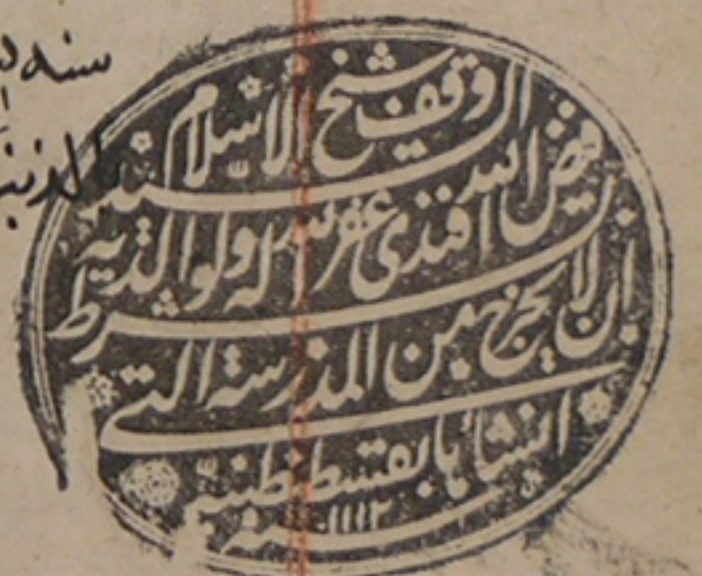 سنه
وقف شيخ الاسلام السيد
فيض الله افندى غفر الله له ولوالديه بشرط
ان لا يخرج من المدرسة التى
انشأها بقسطنطينية
سنة ١١١٢